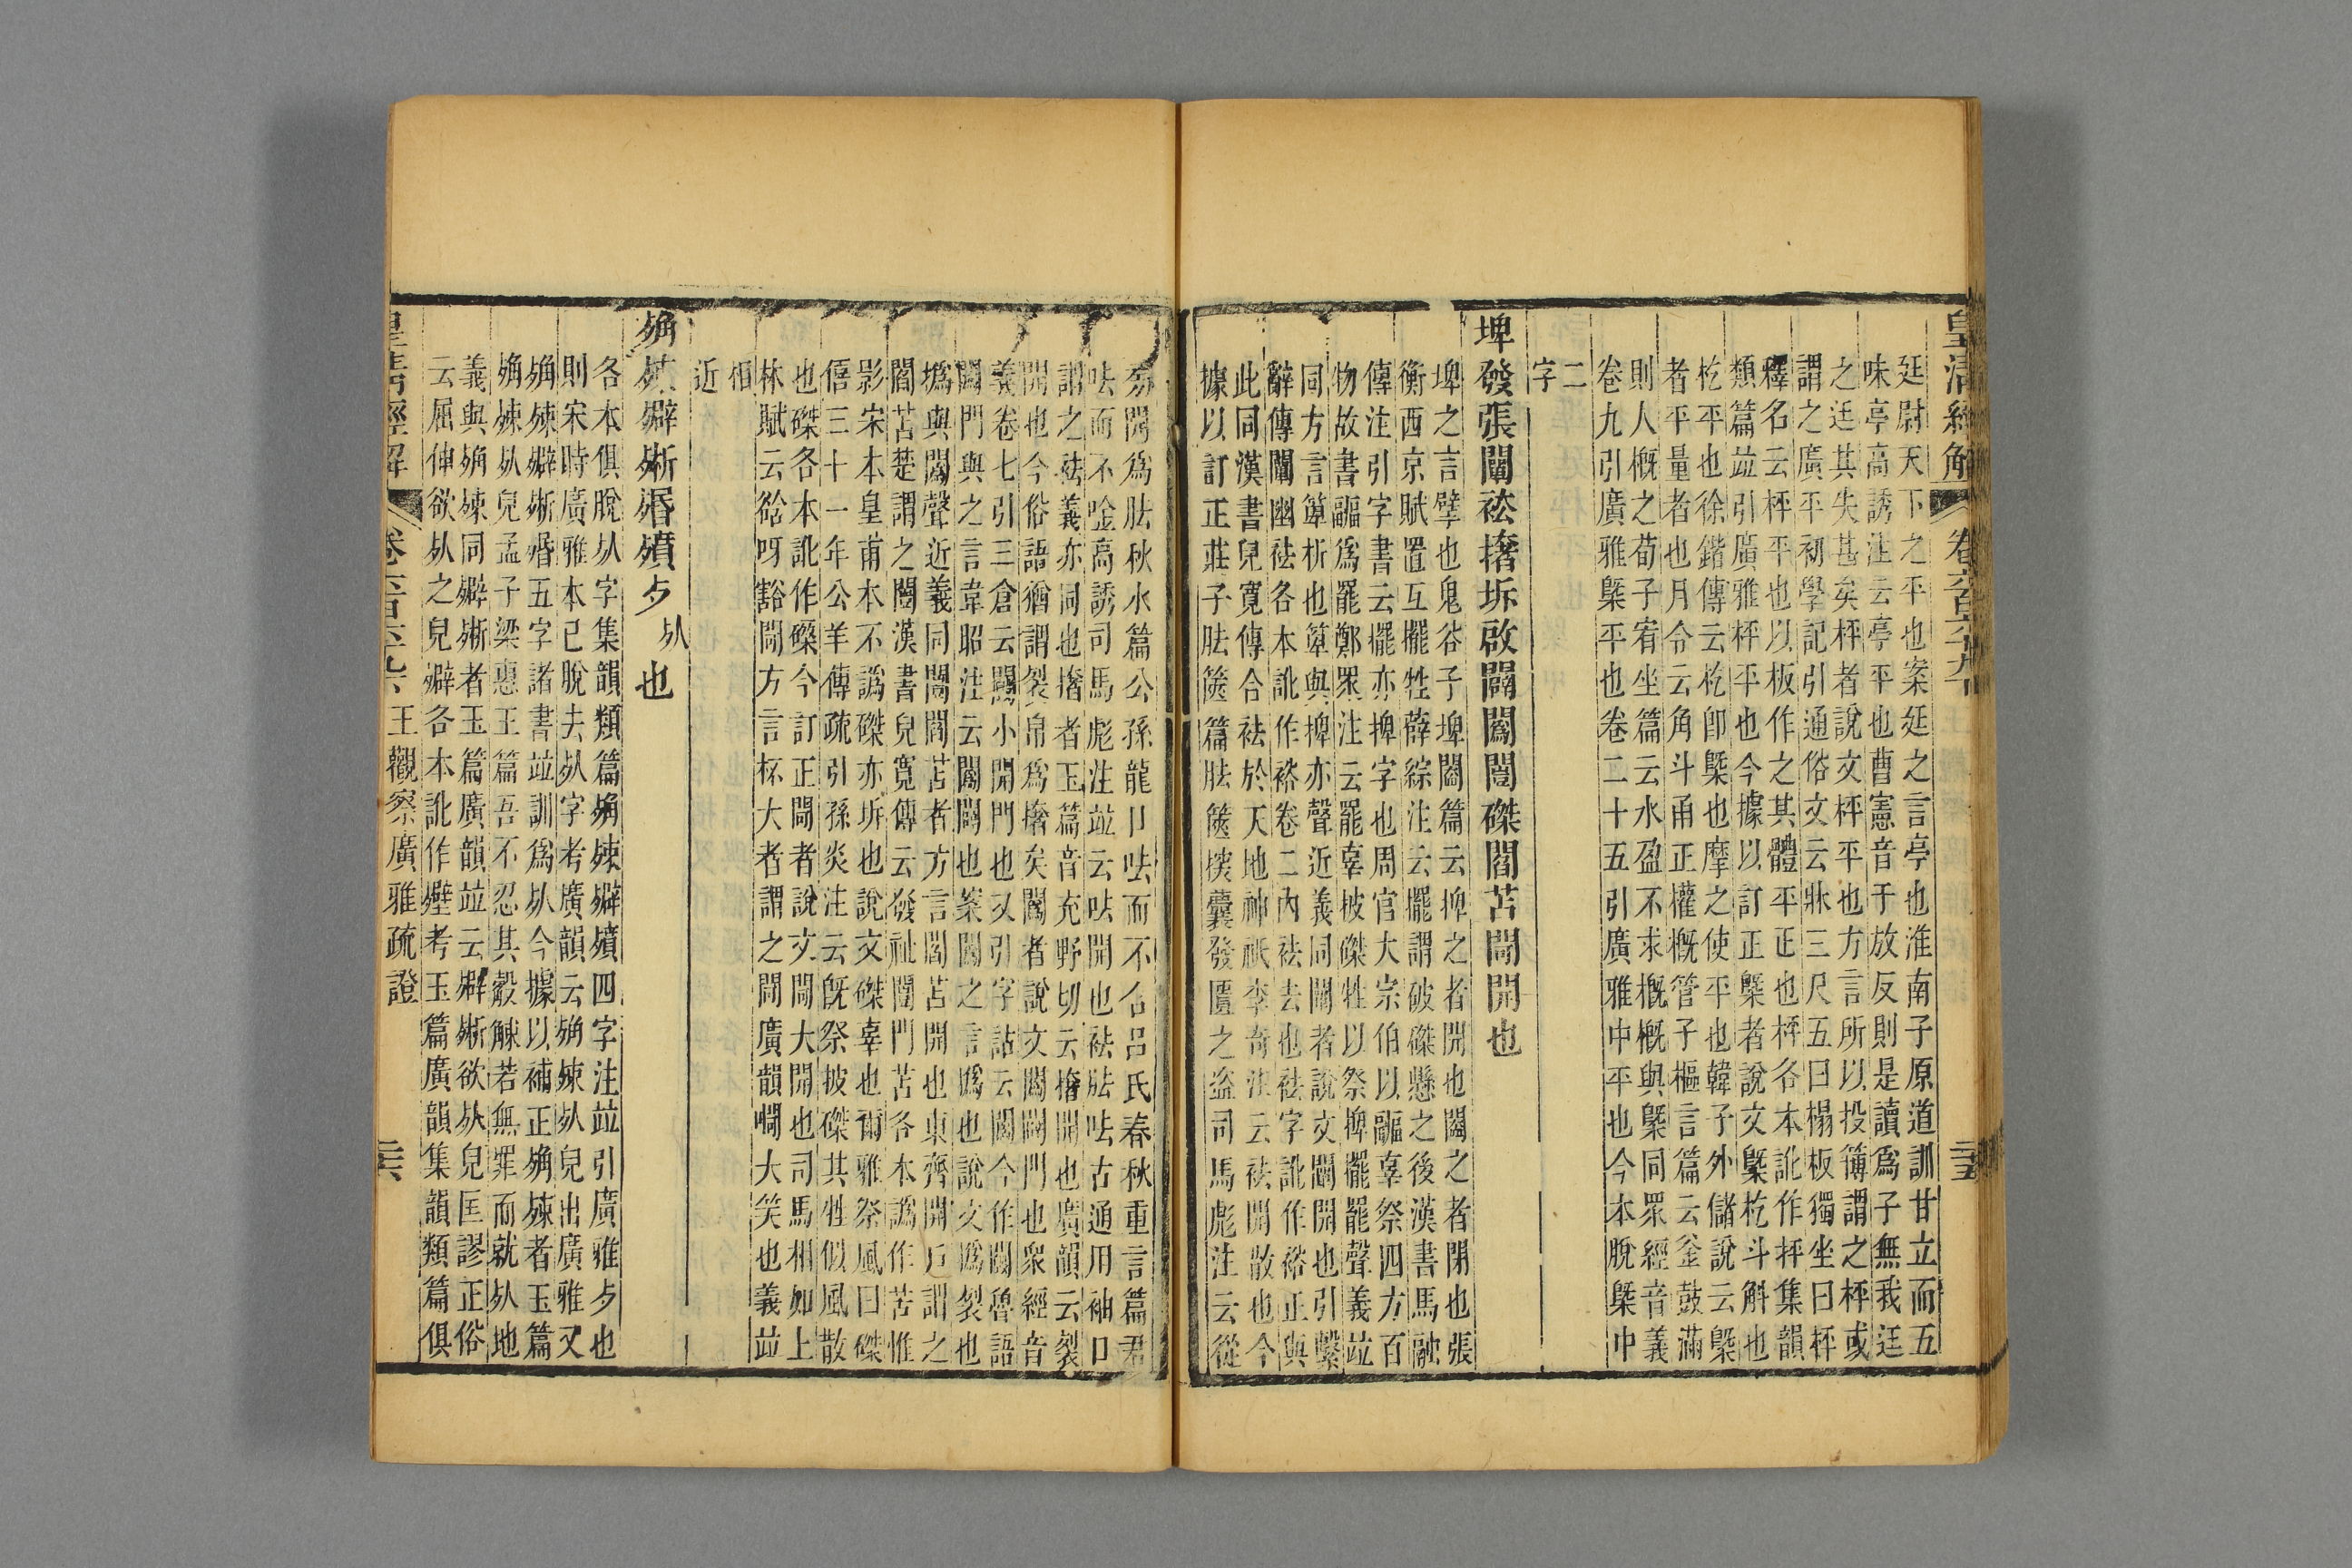 皇清經解 卷六百六十九
廷尉天下之平也案廷之言亭也淮南子原道訓甘立而五
味亭高誘注云亭平也曹憲音于放反則是讀爲子無我迋
之迋其失甚矣枰者說文枰平也方言所以投簙謂之枰或
謂之廣平初學記引通俗文云牀三尺五曰榻板獨坐曰枰
釋名云枰平也以板作之其體平正也枰各本訛作抨集韻
類篇竝引廣雅枰平也今據以訂正槩者說文槩杚斗斛也
杚平也徐鍇傳云杚卽槩也摩之使平也韓子外儲說云槩
者平量者也月令云角斗甬正權槪管子樞言篇云釜鼓滿
則人槪之荀子宥坐篇云水盈不求槪槪與槩同眾經音義
卷九引廣雅槩平也卷二十五引廣雅中平也今本脫槩中
二
字
埤發張闡袪撦坼啟闢闓闛磔閻苫閜開也
埤之言擘也鬼谷子埤闔篇云捭之者開也闔之者閉也張
衡西京賦置互擺牲薛綜注云擺謂破磔懸之後漢書馬融
傳注引字書云擺亦捭字也周官大宗伯以疈辜祭四方百
物故書疈爲罷鄭眾注云罷辜披磔牲以祭捭擺罷聲義竝
同方言箄析也箄與捭亦聲近義同闡者說文闡開也引繫
辭傳闡幽祛各本訛作袼卷二內祛去也祛字訛作袼正與
此同漢書兒寬傳合祛於天地神祇李奇注云祛開散也今
據以訂正莊子胠篋篇胠篋探囊發匱之盜司馬彪注云從
旁開爲胠秋水篇公孫龍口呿而不合呂氏春秋重言篇君
呿而不唫高誘司馬彪注竝云呿開也祛胠呿古通用袖口
謂之祛義亦同也撦者玉篇音充野切云撦開也廣韻云裂
開也今俗語猶謂裂帛爲撦矣闓者說文闓開門也眾經音
義卷七引三倉云闓小開門也又引字詁云闓今作開魯語
闔門與之言韋昭注云闔闢也案闔之言撝也說文撝裂也
撝與闔聲近義同閻苫者方言閻苫開也東齊開戶謂之
閻苫楚謂之闓漢書兒寬傳云發祉闓門苫各本譌作苦惟
影宋本皇甫本不譌磔亦坼也說文磔辜也爾雅祭風曰磔
僖三十一年公羊傳疏引孫炎注云旣祭披磔其牲似風散
也磔各本訛作磼今訂正閜者說文閜大開也司馬相如上
林賦云谽呀豁閜方言桮大者謂之閜廣韻㗿大笑也義竝
相
近
㱭㱱㿺㪿㱪殰歺䏎也
各本俱脫𣦸字集韻類篇殰四字注竝引廣雅歺也
則宋時廣雅本已脫去字考廣韻云兒出廣雅又
五字諸書竝訓爲今據以補正者玉篇
兒孟子梁惠王篇吾不忍其觳觫若無罪而就地
義與同者玉篇廣韻竝云欲兒匡謬正俗
云屈伸欲之兒各本訛作考玉篇廣韻集韻類篇俱
皇清經解 卷六百六十九 王觀察廣雅疏證